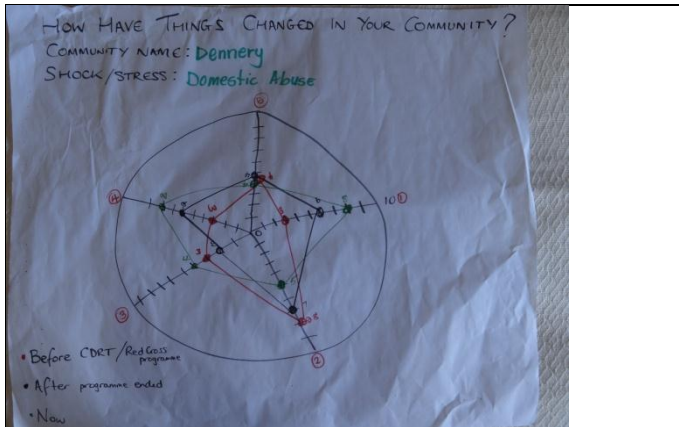 HOW HAVE THINGS CHANGED IN YOUR COMMUNITY?
COMMUNITY NAME: Dennery
SHOCK/STRESS: Domestic Abuse
5
4
10 1
0
3
2
• Before CDRT/Red Cross programme
• After programme ended
• Now